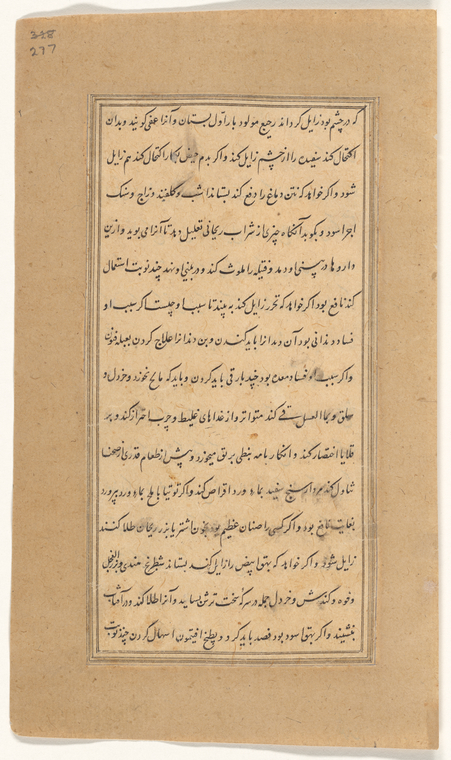 348
277
که در چشم بود زایل کرداند رجیع مولود بار اول بستان و آنرا عفی کویند و بدان
اکتحال کند سفیدی را از چشم زایل کند و اکر بدم حیض بکار اکتحال کند هم زایل
شود و اکر خواهد که نتن دماغ را دفع کند بستاند شب و کلفند و زاج و سک
اجزا سود و بکوبد آنکاه چیزی از شراب ریحانی تعلیل دهد تا آنرا می بوید و ازین
داروها در بینی او دمد و فتیله را ملوث کند و در بینی نهد چند نوبت استعمال
کند نافع بود اکر خواهد که بخر زایل کند به بیند تا سبب او چیست اکر سبب او
فساد دندانی بود آن دندانرا باید کندن و بن دندانرا علاج کردن
واکر سبب او فساد معده بود چند بار قی باید کردن و باید که مالح نخورد و خردل و
سلق و بماء العسل قی کند متواتر و از غذاهای غلیظ و چرب احتراز کند و بر
قلایا اختصار کند و انکار نامه میخورد و پیش از طعام قدری
تناول کند مردارسنج سفید بماء ورد اقراص کند و اکر توتیا با بماء ورد بپرورد
بغایت نافع بود و اکر کسی را صنان عظیم بود بخون اشتر یا بزر ریحان طلا کنند
زایل شود و اکر خواهد که بهق ابیض را زایل کند بستاند شیطرج هندی و بزر الفجل
و فوه و کندش و خردل جمله در سرکه سخت ترش بساید و آنرا طلا کند و در آفتاب
بنشیند و اکر بهق اسود بود فصد باید کرد و بطبخ افتیمون اسهال کردن چند نوبت